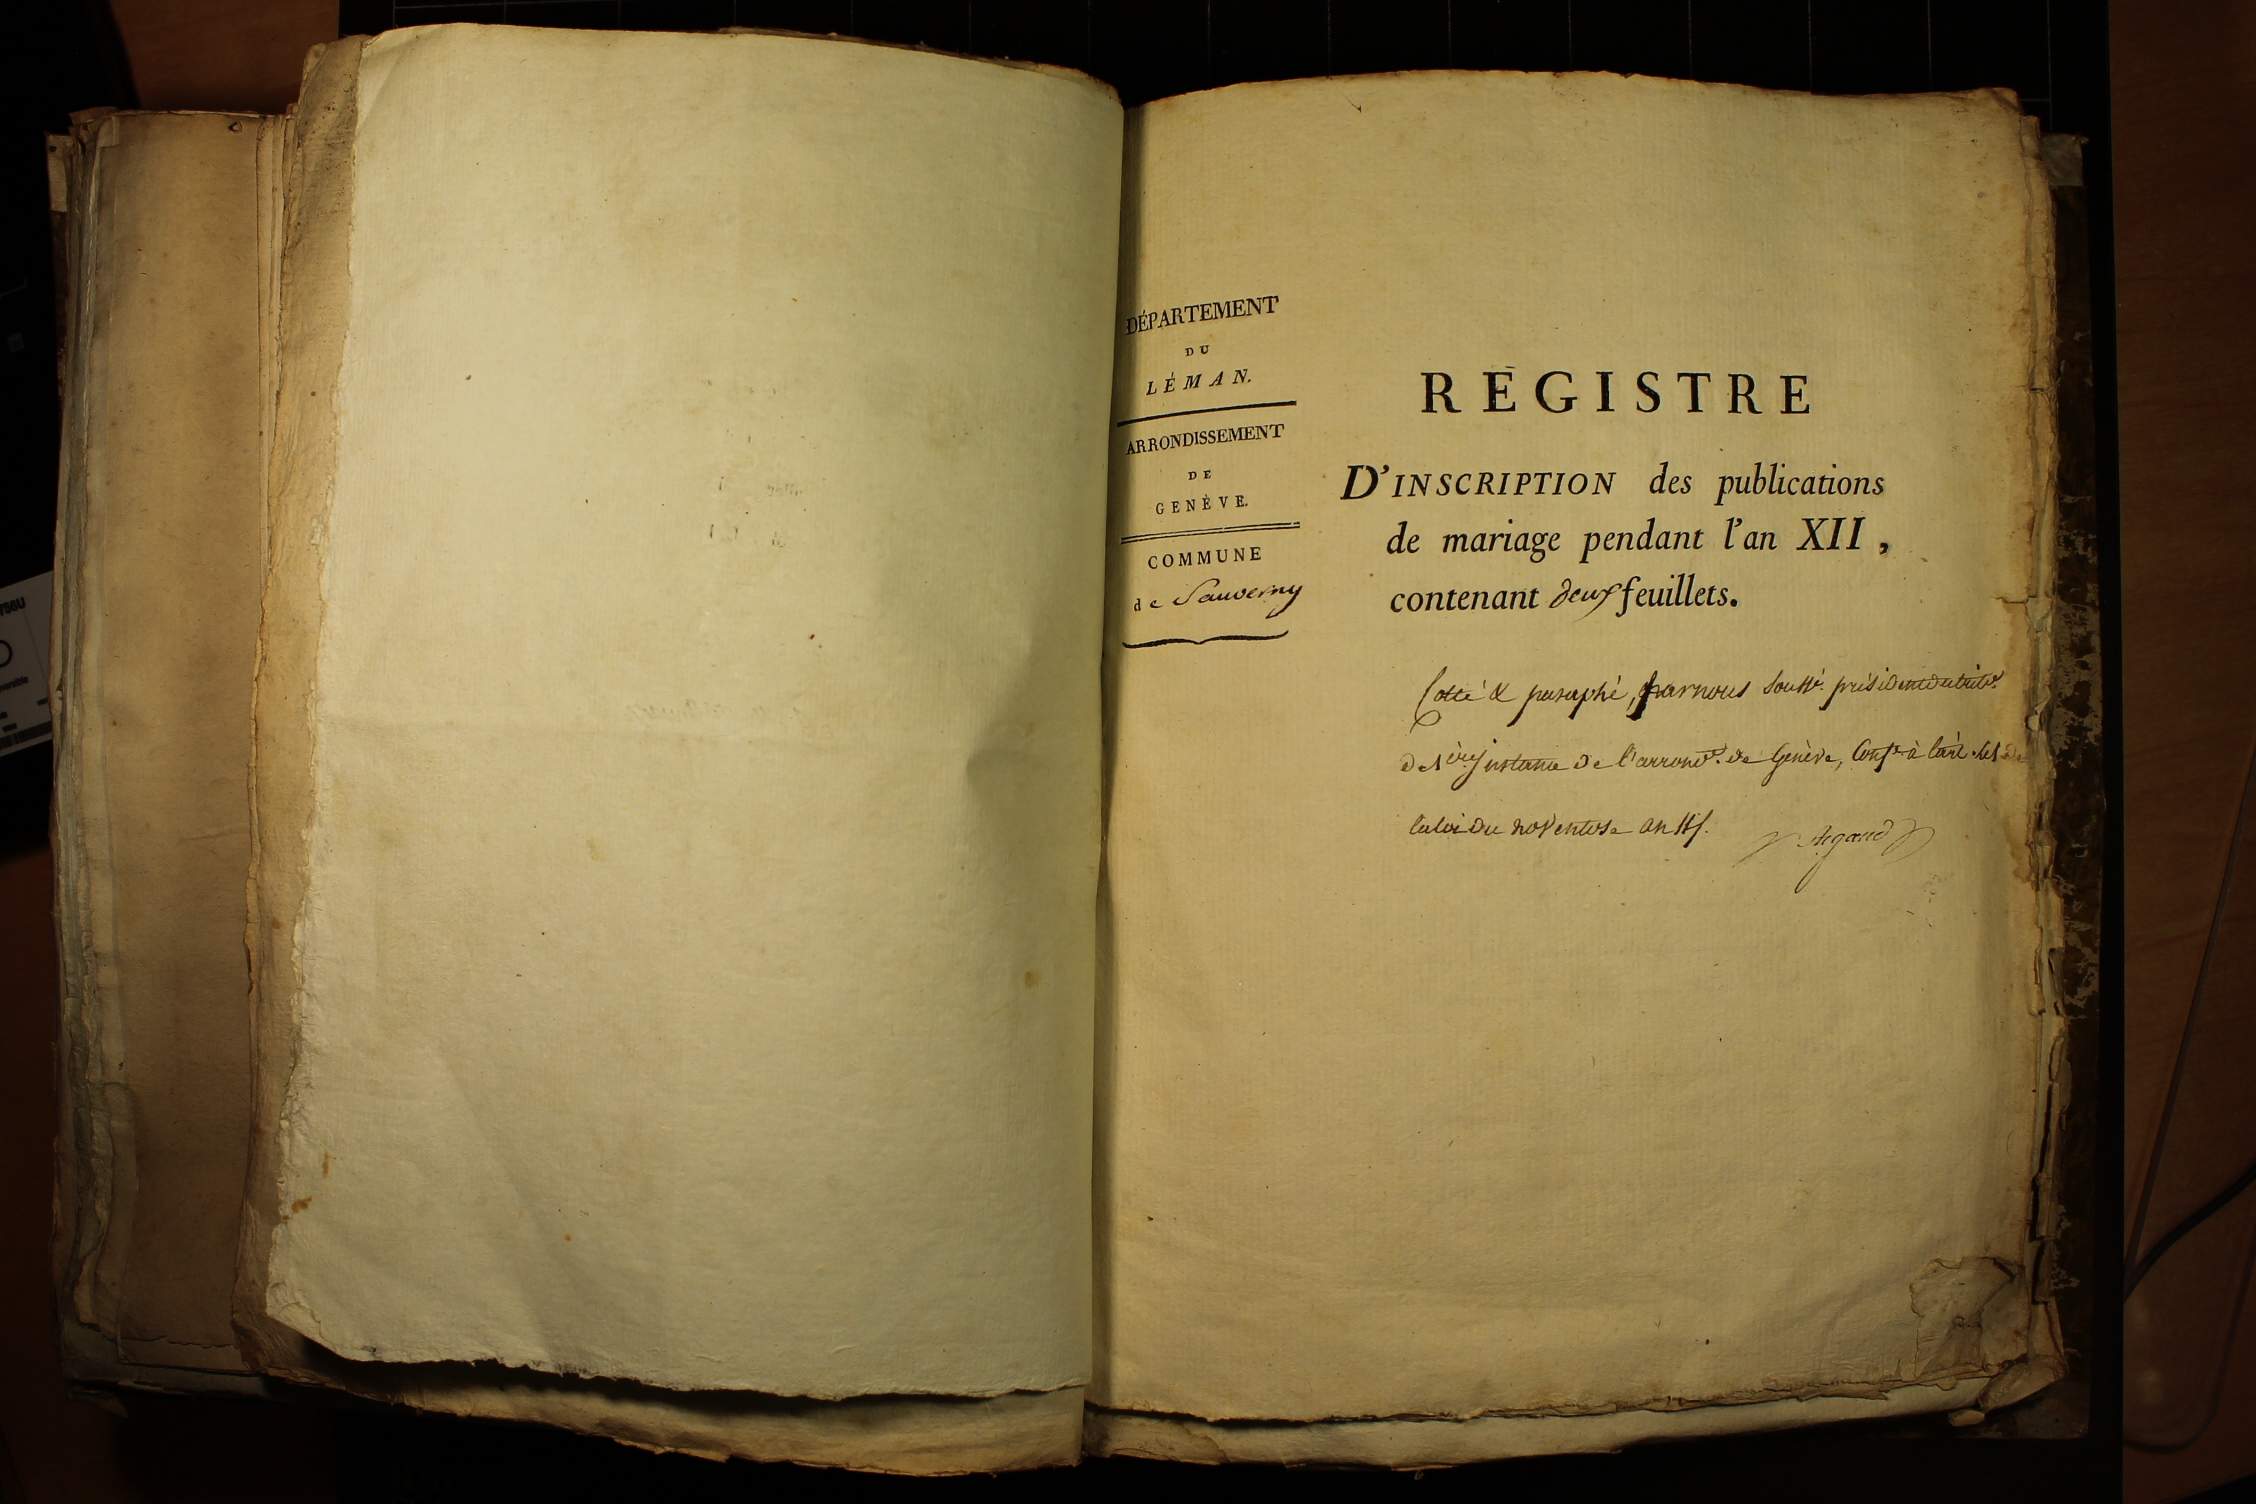 DÉPARTEMENT
DU
LÉMAN.
ARRONDISSEMENT
DE
GENÈVE.
COMMUNE
de Sauverny
REGISTRE
D'INSCRIPTION des publications
de mariage pendant l'an XII,
contenant deux feuillets.
Cotté & paraphé, par nous souss.é président du trib.
de 1ère instance de l'arrond.t de Genève, Conf.t à l'art. de
la loi du ventose an
Argand